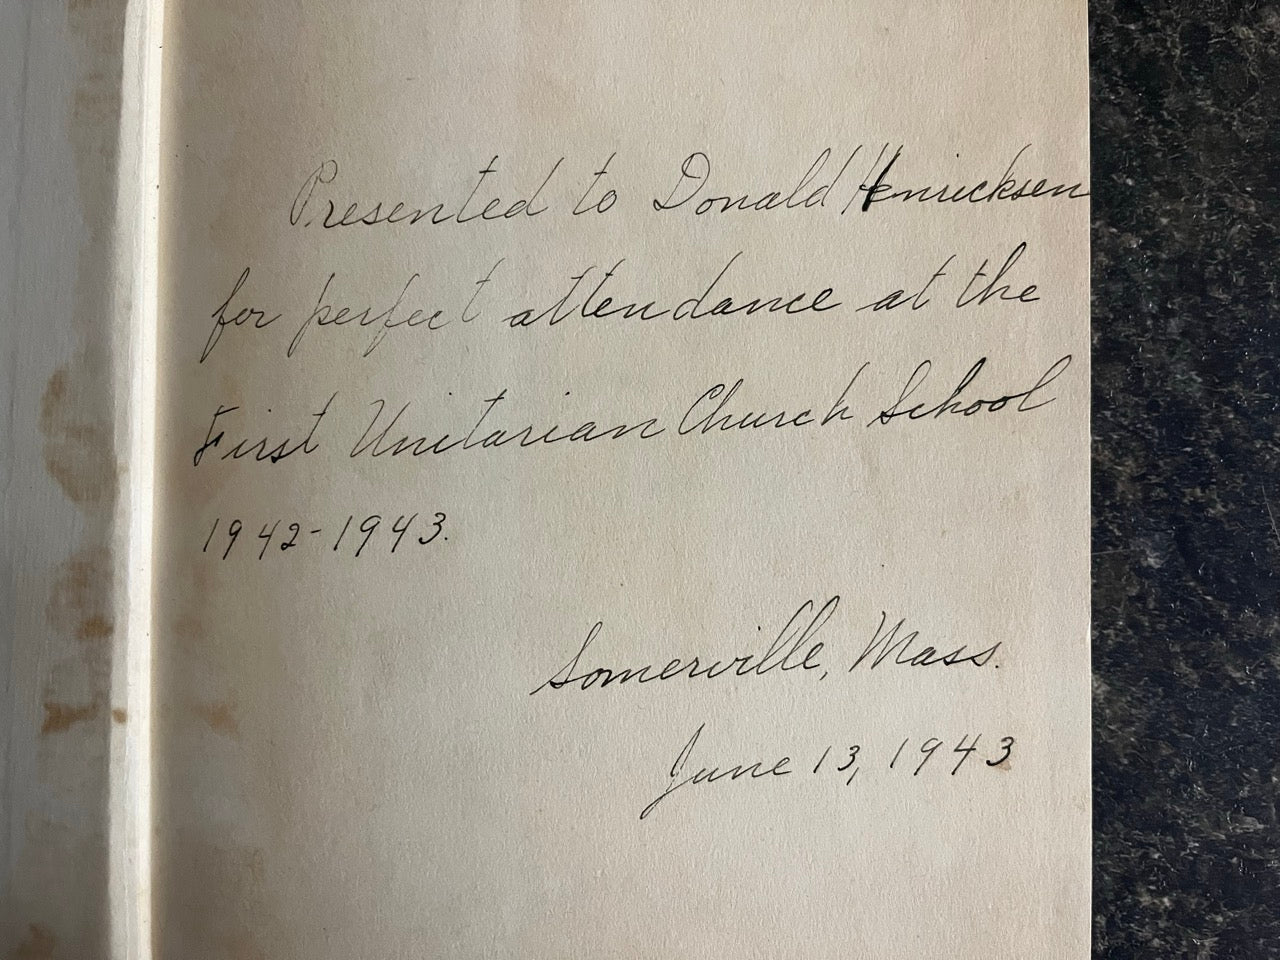 Presented to Donald Henricksen
for perfect attendance at the
First Unitarian Church School
1942-1943.
Somerville, Mass.
June 13, 1943